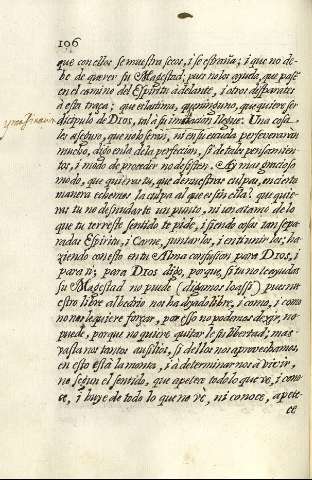 196
que con ellos se muestra seco, i se estraña; i que no de-
be de querer su Magestad, pues no los ayuda, que passe
en el camino del Espiritu adelante, i otros disparates
a esta traça; que es lastima, que ninguno, que quiere ser
discipulo de Dios, tal à su llegue. Una cosa
les asseguro, que no lo seràn, ni en su escuela perseveraràn
mucho, digo en la de la perfeccion, si de tales pensamien-
tos, i modo de proceder no desisten. Ay mas gracioso
modo, que quieras tu, que à nuestras culpas, en cierta
manera echemos la culpa al que es sin ella? que quie-
ras tu no desnudarte un punto, ni un atamo de lo
que tu terrestre sentido te pide, i siendo cosas tan sepa-
radas Espiritu, i Carne, juntarlos, i entinunirlos; ha-
ziendo con esto en tu Alma confusion para Dios, i
para ti; para Dios digo, porque, si tu no le ayudas
su Magestad no puede (digamoslo assi) pues en
este libre albedrio nos ha dejado libre, i como, i como
no nos le quiere forçar, por esso no podemos dezir, no
puede, porque no quiere quitarle su libertad; mas
vastannos tantos ausilios, si dellos nos aprovechamos,
en esto està la monta, i à determinarnos à vivir,
no segun el sentido, que apetece todo lo que ve, i cono-
ce, i huye de todo lo que no vè, ni conoce, apete-
ce